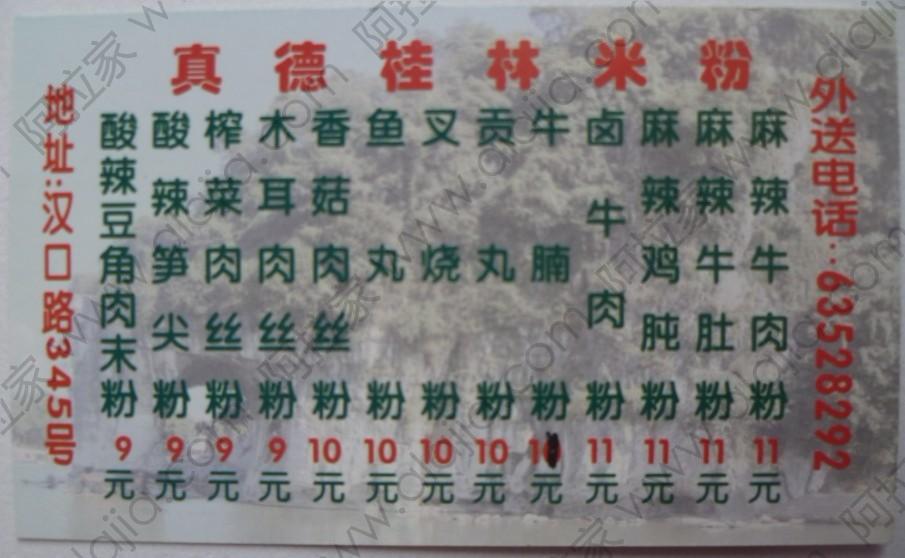 真德桂林米粉
地址:汉口路345号
酸辣豆角肉末粉9元
酸辣笋尖粉9元
榨菜肉丝粉9元
木耳肉丝粉9元
香菇肉丝粉10元
鱼丸粉10元
叉烧粉10元
贡丸粉10元
牛腩粉10元
卤牛肉粉11元
麻辣鸡肫粉11元
麻辣牛肚粉11元
麻辣牛肉粉11元
外送电话:63528292
阿拉家 www.alajia.com